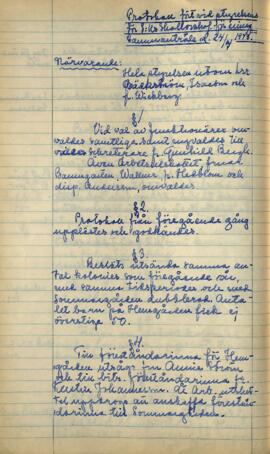 Protokoll fört vid styrelsen
för
sammanträde d. 24/4 1938.
Närvarande:
Hela styrelsen utom hrr
Bäckström, Isacson och
fr. Wickberg.
§1
Vid val av funktionärer om-
valdes samtliga samt nyvaldes till
sekreterare fr. Gunhild Bergh.
Även Arbetsutskottet, fruar
Baumgarten, Wallner, fr. Hedblom och
disp. Anderson, omvaldes.
§2.
Protokoll från föregående gång
upplästes och godkändes.
§3.
Beslöts utsända samma an-
tal kolonier som föregående år,
med samma tidsperioder och med
Sommargården dubblerad. Anta-
let barn på Hemgården fick ej
överstiga 50.
§4.
Till föreståndarinna för Hem-
gården utsågs frn Annie Ström
och till bitr. föreståndarinna fr.
Kerstin Johannesson. At Arb. utskot-
tet uppdrogs att anskaffa förestån-
darinna till Sommargården.